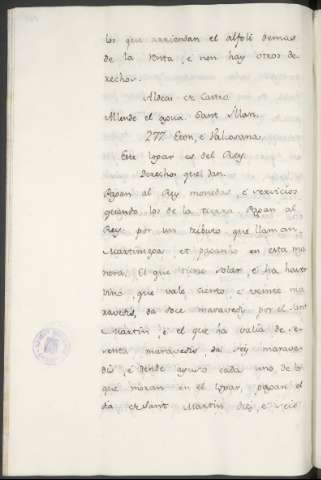 los que arriendan el alfolí demas
de la renta, e non hay otros de-
rechos.
Aldeas de Castro
Allende el agua Sant Illan.
277. Eton, e Valcasana.
Este logar es del Rey.
Derechos quel dan.
Pagan al Rey monedas, e servicios
quando los de la tierra pagan al
Rey por un tributo que llaman
Martiniega et paganlo en esta ma
nera. El que tiene solar, e ha hasta
que vale ciento, e veinte ma
ravedis, da doce maravedis por el Sant
Martin, e el que ha valia de se-
senta maravedis, da seis marave-
dis, e dende ayuso cada uno de los
que moran en el logar, pagan el
dia de Sant Martin diez, e seis